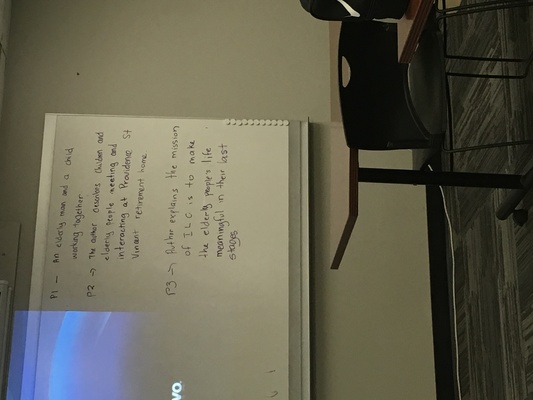 P1 — An elderly man and a child
working together
P2 → The author describes children and
elderly people meeting and
interacting at Providence St
Vinant retirement home
P3 → Author explains the mission
of ILC is to make
the elderly people life
meaningful in their last
stages
vo.